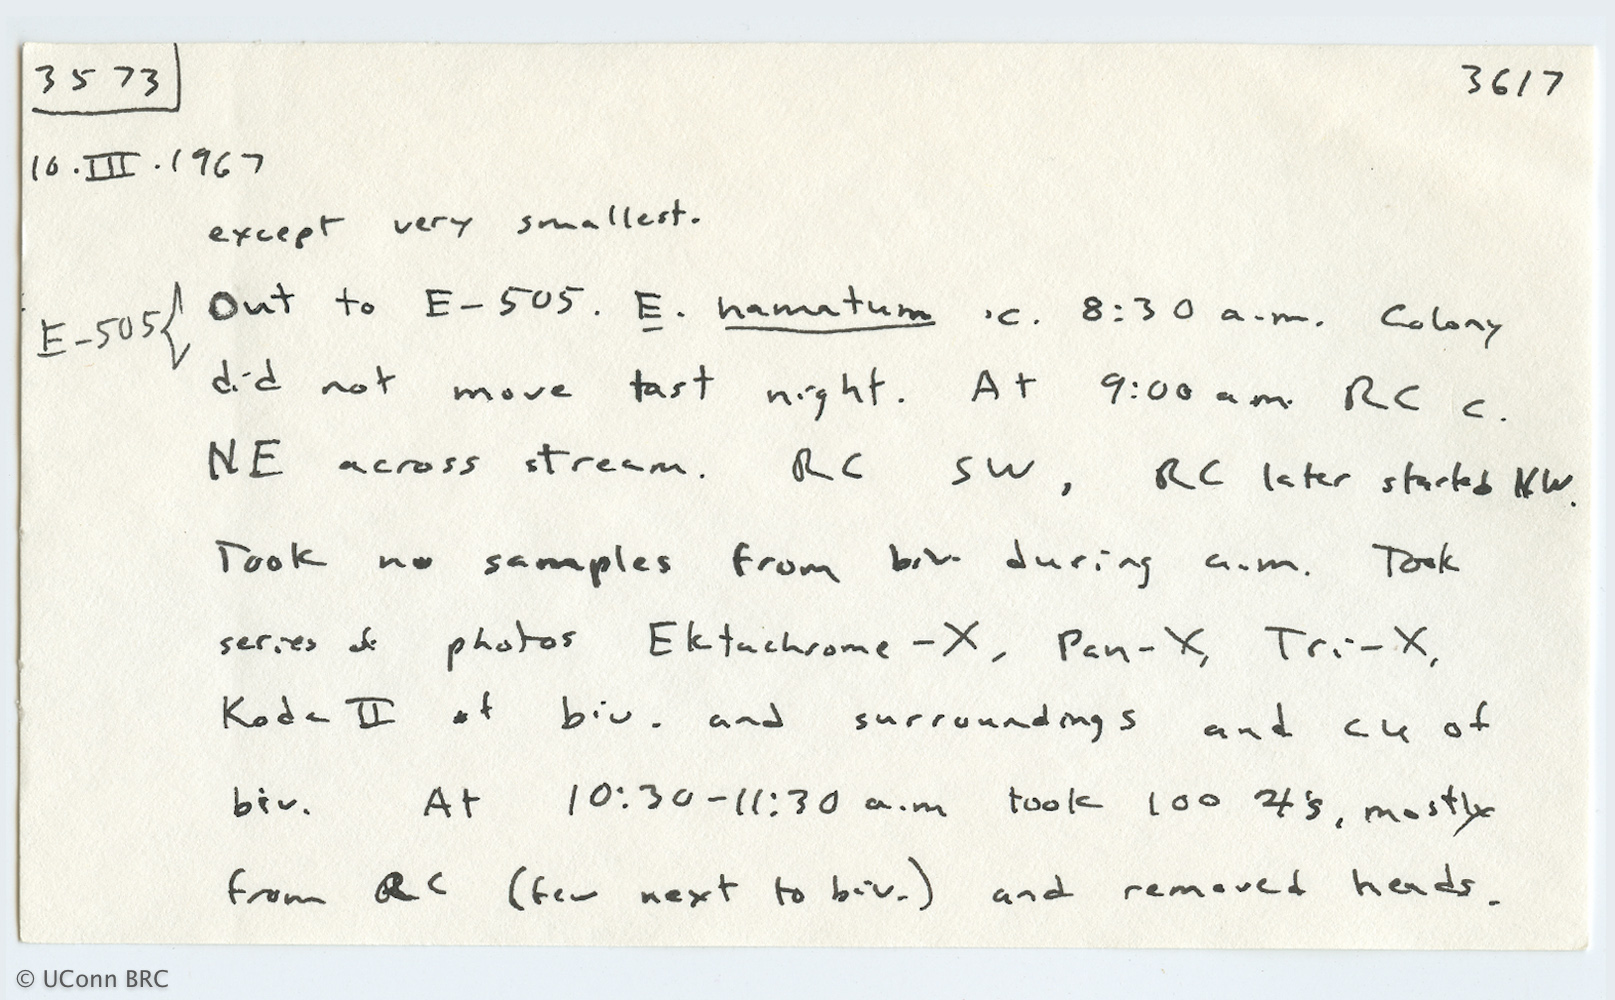 3573
3617
10.III.1967
except very smallest.
E-505 { Out to E-505. E. hamatum .c. 8:30 a.m. Colony
did not move last night. At 9:00 a.m. RC c.
NE across stream. RC SW, RC later started NW.
Took no samples from biv. during a.m. Took
series of photos Ektachrome-X, Pan-X, Tri-X,
Koda II of biv. and surroundings and cu of
biv. At 10:30-11:30 a.m took 100 , mostly
from RC (few next to biv.) and removed heads.
© UConn BRC